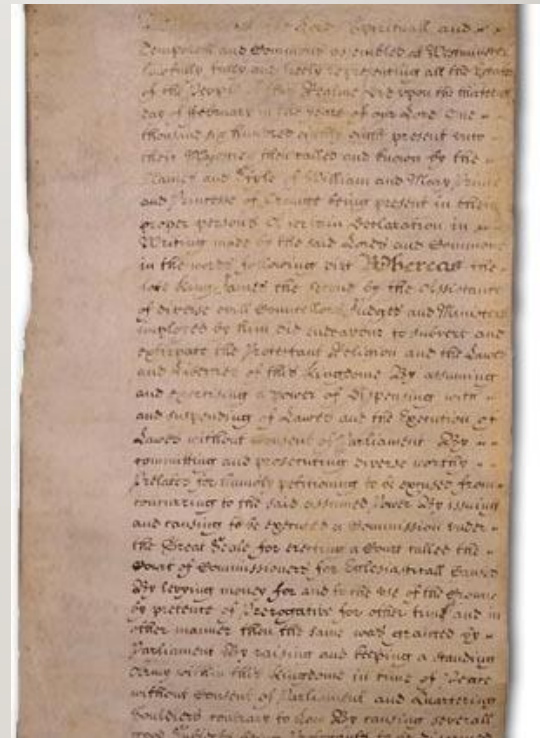 Lords Spirituall and
Temporall and Commons assembled at Westminster
lawfully fully and freely representing all the Estates
of the People of this Realme did upon the thirteenth
day of February in the yeare of our Lord One
thousand six hundred eighty eight present unto
their Majesties then called and known by the
Names and Stile of William and Mary Prince
and Princesse of Orange being present in their
proper persons A certain Declaration in
Writing made by the said Lords and Commons
in the words following vizt Whereas the
late King James the second by the Assistance
of diverse evill Councellors Judges and Ministers
imployed by him did endeavour to subvert and
extirpate the Protestant Religion and the Lawes
and Liberties of this Kingdome By assuming
and exercising a power of Dispensing with
and suspending of Lawes and the Execution of
Lawes without Consent of Parliament By
committing and prosecuting diverse worthy
Prelates for humbly petitioning to be excused from
concurring to the said assumed Power By issuing
and causing to be executed a Commission under
the Great Seale for erecting a Court called the
Court of Commissioners for Ecclesiasticall Causes
By levying money for and to the use of the Crowne
by pretence of Prerogative for other time and in
other manner then the same was granted by
Parliament By raising and keeping a standing
Army within this Kingdome in time of Peace
without Consent of Parliament and Quartering
Souldiers contrary to Law By causing severall
good Subjects being Protestants to be disarmed